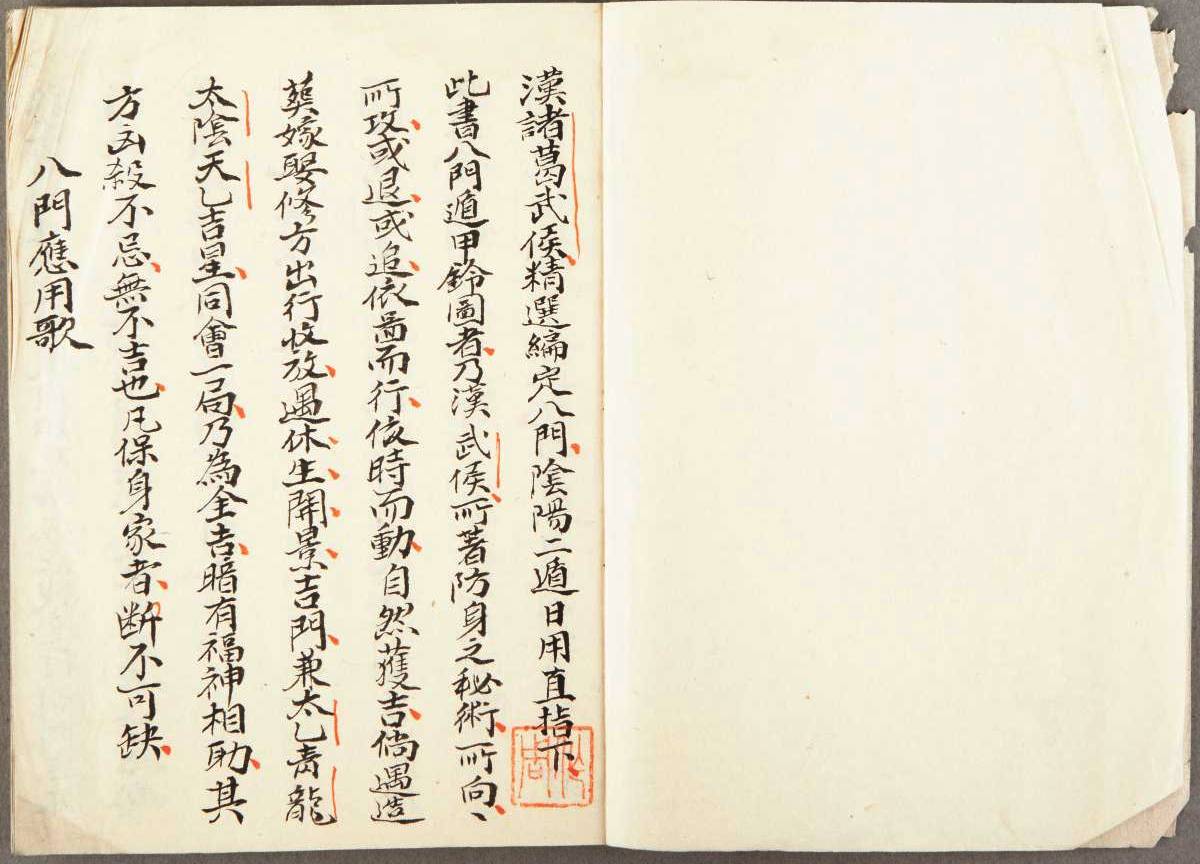 漢諸葛武侯精選編定八門陰陽二遁日用直指下
此書八門遁甲鈐圖者乃漢武侯所著防身之秘術所向、
所攻或退或追依啚而行依時而動自然獲吉倘遇造
葬嫁娶修方出行收放遇休生開景吉門兼太乙青龍
太陰天乙吉星同會一局乃為全吉暗有福神相助其
方凶殺不忌無不吉也凡保身家者断不可缺
八門應用歌